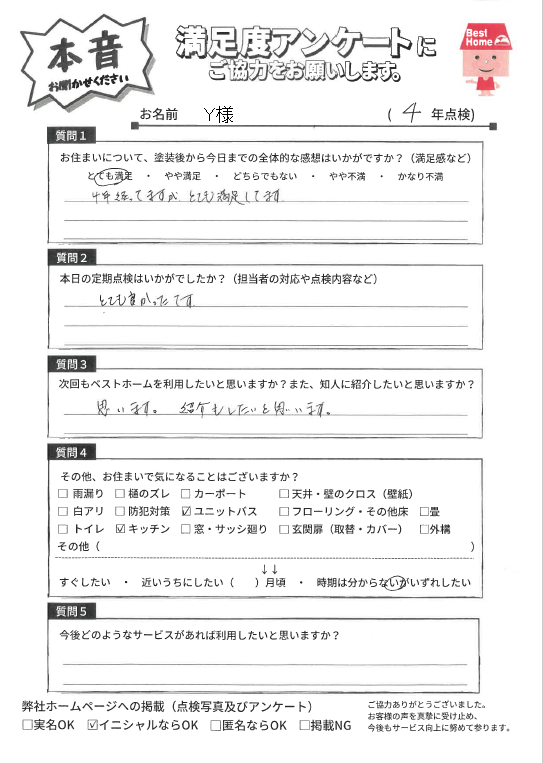 本音
お聞かせください
満足度アンケートに
ご協力をお願いします。
Best
Home
お名前 Y様 ( 4 年点検)
質問1
お住まいについて、塗装後から今日までの全体的な感想はいかがですか？（満足感など）
とても満足 ・ やや満足 ・ どちらでもない ・ やや不満 ・ かなり不満
4年経ってますが とても満足してます
質問2
本日の定期点検はいかがでしたか？（担当者の対応や点検内容など）
とても良かったです
質問3
次回もベストホームを利用したいと思いますか？また、知人に紹介したいと思いますか？
思います。 紹介もしたいと思います。
質問4
その他、お住まいで気になることはございますか？
☐ 雨漏り ☐ 樋のズレ ☐ カーポート ☐ 天井・壁のクロス（壁紙）
☐ 白アリ ☐ 防犯対策 ☑ ユニットバス ☐ フローリング・その他床 ☐畳
☐ トイレ ☑ キッチン ☐ 窓・サッシ廻り ☐ 玄関扉（取替・カバー） ☐外構
その他（ ）
↓↓
すぐしたい ・ 近いうちにしたい（ ）月頃 ・ 時期は分からないがいずれしたい
質問5
今後どのようなサービスがあれば利用したいと思いますか？
弊社ホームページへの掲載（点検写真及びアンケート）
☐実名OK ☑イニシャルならOK ☐匿名ならOK ☐掲載NG
ご協力ありがとうございました。
お客様の声を真摯に受け止め、
今後もサービス向上に努めて参ります。